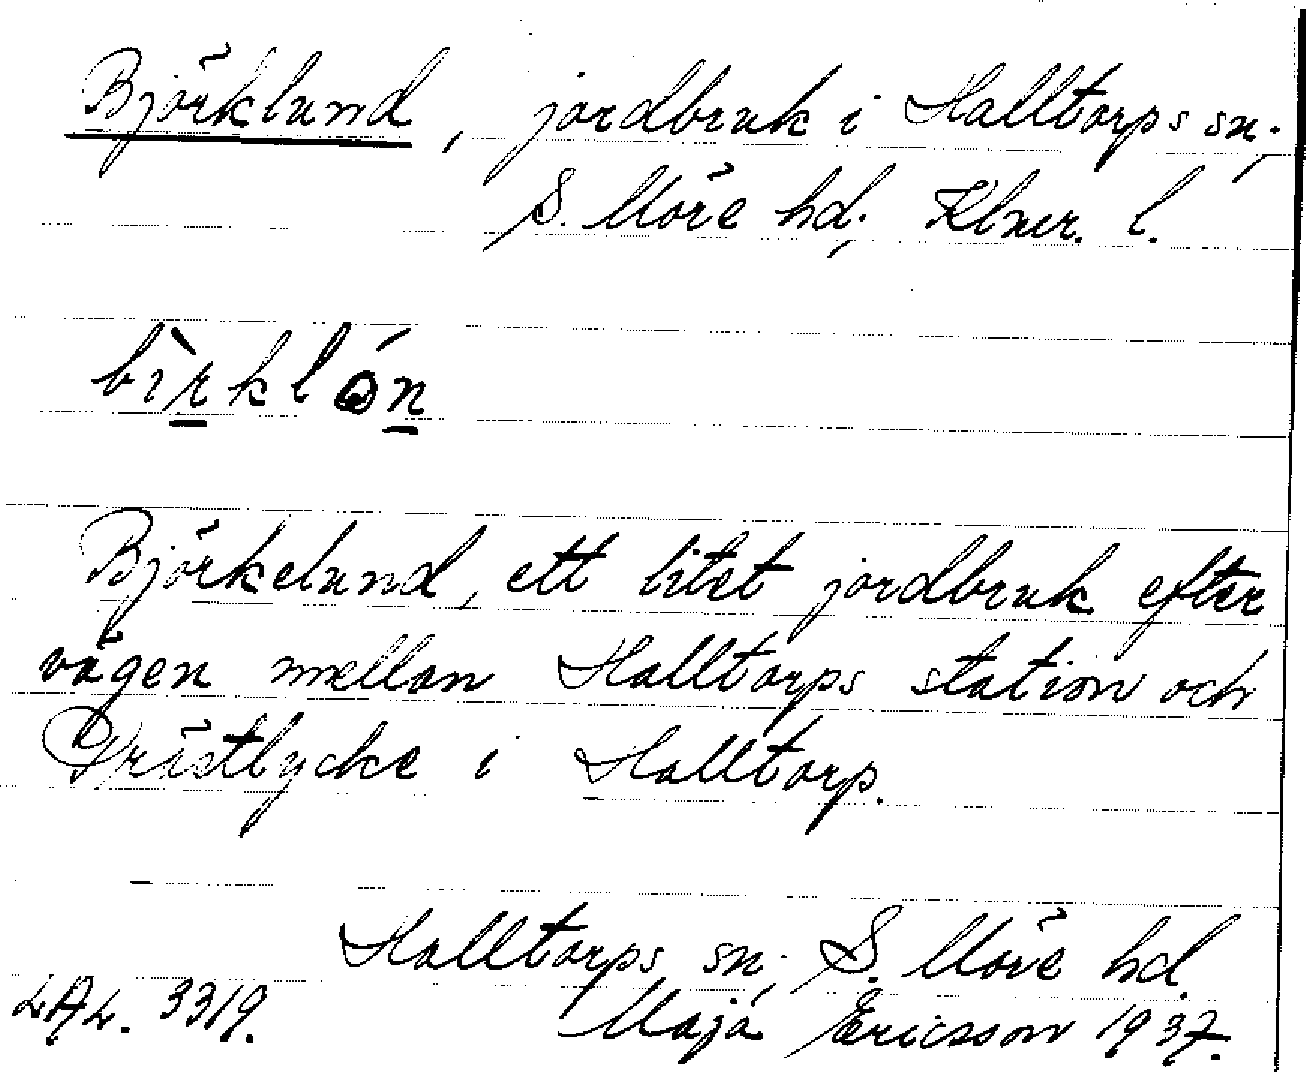 Björklund, jordbruk i Halltorps sn,
S. Möre hd, Klmr. l.
bìrklón
Björkelund, ett litet jordbruk efter
vägen mellan Halltorps station och
Dristlycke i Halltorp.
Halltorps sn, S. Möre hd.
LAL. 3319. Maja Ericsson 1937.